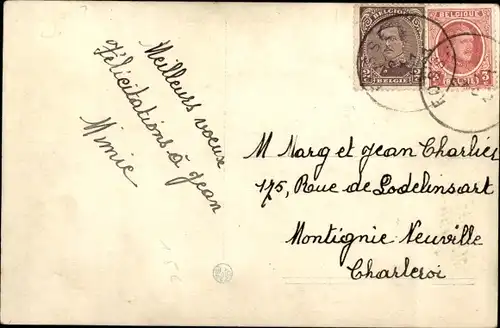 Meilleurs voeux
Félicitations à Jean
Mimie
BELGIQUE
BELGIE
BELGIQUE
M Marg et Jean Charlier
175, Rue de Lodelinsart
Montignie Neuville
Charleroi
15€